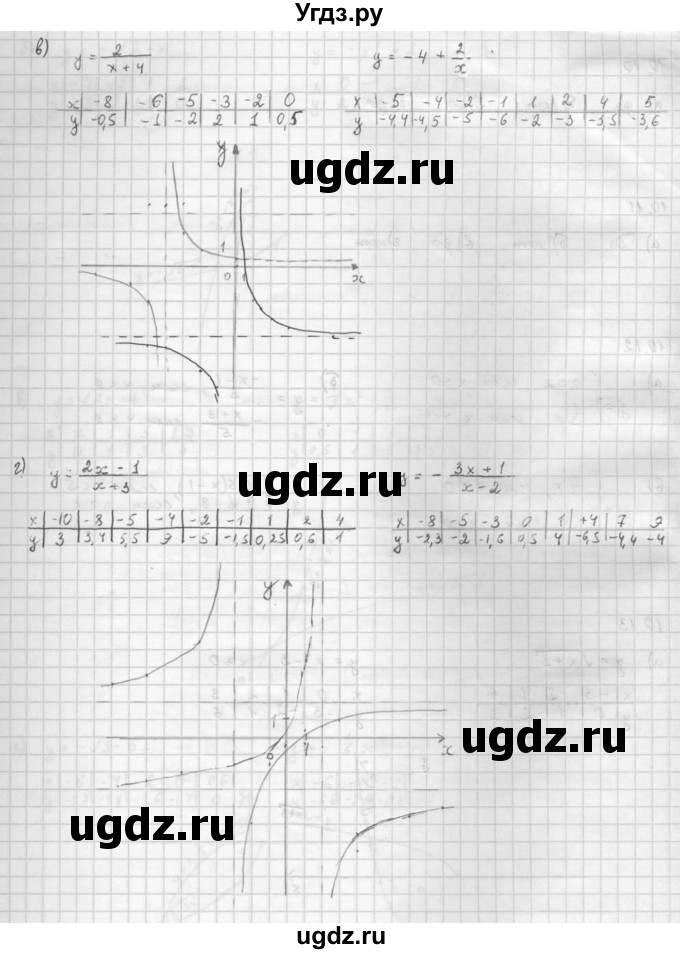 Угдз.ру
в) y = 2/(x + 4)    y = -4 + 2/x
x | -8 | -6 | -5 | -3 | -2 | 0
y | -0,5 | -1 | -2 | 2 | 1 | 0,5
x | -5 | -4 | -2 | -1 | 1 | 2 | 4 | 5
y | -4,4 | -4,5 | -5 | -6 | -2 | -3 | -3,5 | -3,6
y
ugdz.ru
1
0 1 x
ugdz.ru
г) y = (2x - 1)/(x + 3)    y = - (3x + 1)/(x - 2)
x | -10 | -8 | -5 | -4 | -2 | -1 | 1 | 2 | 4
y | 3 | 3,4 | 5,5 | 9 | -5 | -1,5 | 0,25 | 0,6 | 1
x | -8 | -5 | -3 | 0 | 1 | +4 | 7 | 9
y | -2,3 | -2 | -1,6 | 0,5 | 4 | -6,5 | -4,4 | -4
y
1
0 1 x
ugdz.ru
ugdz.ru
ugdz.ru